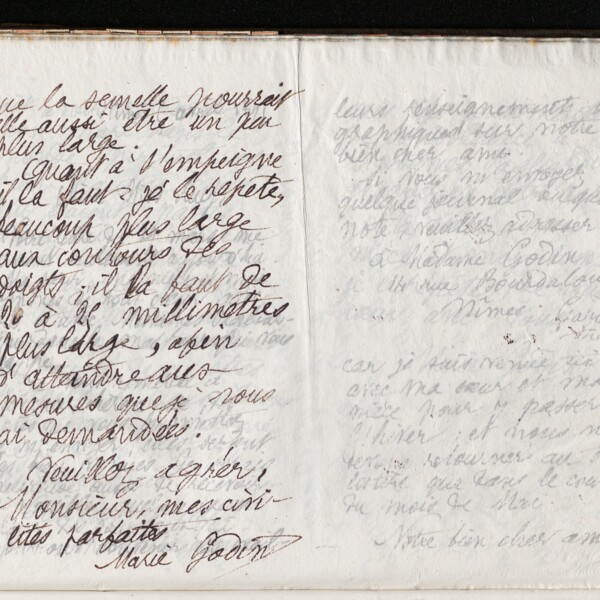 que la semelle pourrait
elle aussi être un peu
plus large.
Quant à l'empeigne
il la faut, je le répète,
beaucoup plus large
aux contours des
doigts; il la faut de
20 à 25 millimètres
plus large, afin
d'atteindre aux
mesures que je vous
ai demandées.
Veuillez agréer,
Monsieur, mes civi-
lités parfaites
Marie Godin
leurs renseignements
graphiques sur notre
bien cher ami.
Si vous m'envoyez
quelque journal
note veuillez adresser
à Madame Godin
rue Bourdaloue
Nîmes. Gard
car je suis venue ici
avec ma sœur et ma
mère pour y passer
l'hiver, et nous ne
retourner au
que dans le cou
du mois de Mai.
Notre bien cher ami